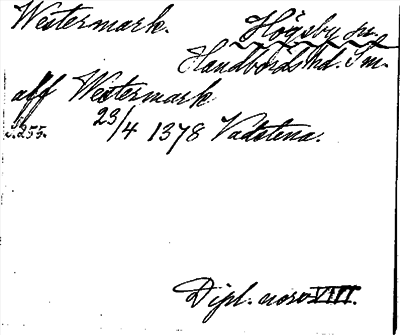 Westermark.
Högsby sn.
Handbörds hd. Sm.
aff Westermark
23/4 1378 Vadstena.
s. 255.
Dipl. norv VIII.